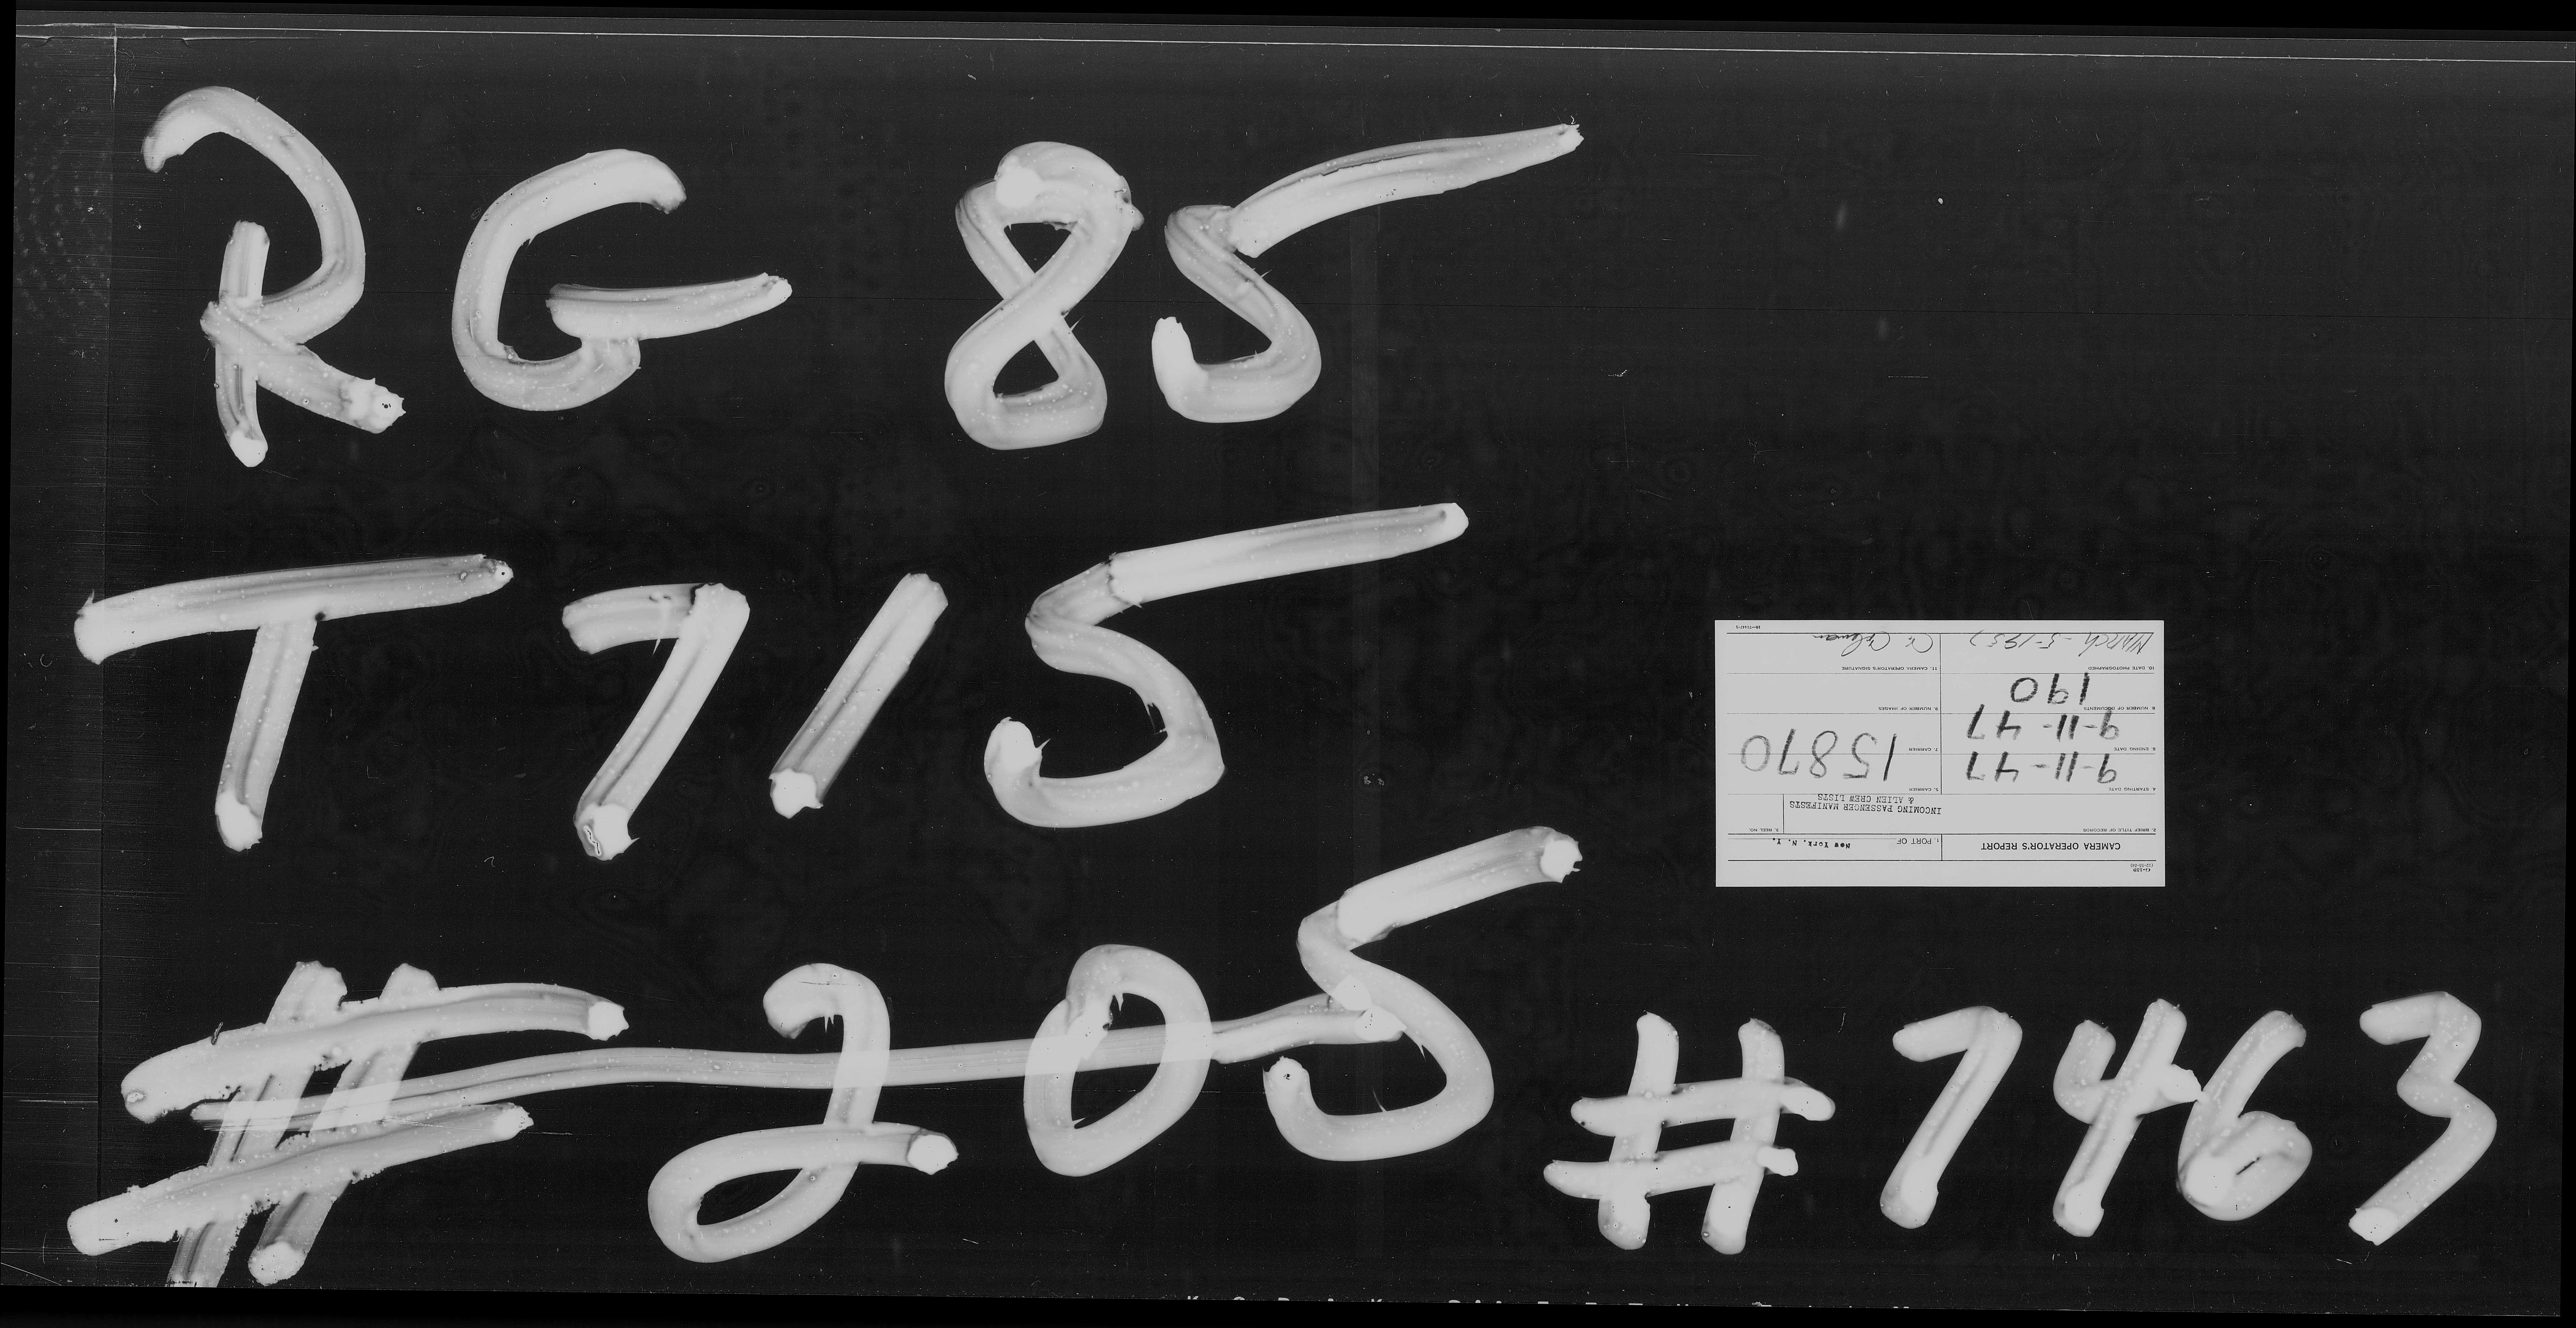 RG 85
T 715
# 205
# 7463
CAMERA OPERATOR'S REPORT
1. PORT OF
New York, N. Y.
2. BRIEF TITLE OF RECORDS
INCOMING PASSENGER MANIFESTS
& ALIEN CREW LISTS
3. REEL NO.
4. STARTING DATE
9-11-47
5. CARRIER
15870
6. ENDING DATE
9-11-47
7. CARRIER
8. NUMBER OF DOCUMENTS
190
9. NUMBER OF IMAGES
10. DATE PHOTOGRAPHED
MARCH - 5-1957
11. CAMERA OPERATOR'S SIGNATURE